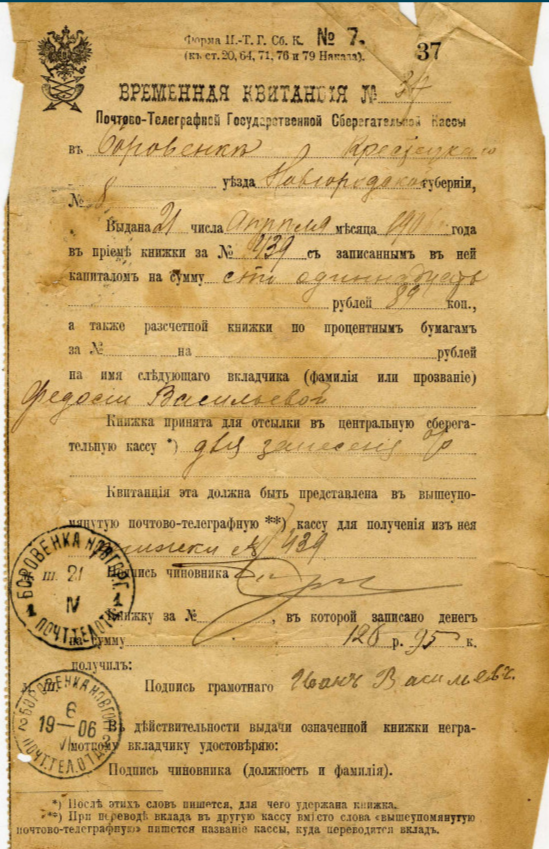 Форма П.-Т. Г. Сб. К. № 7.
37
(къ ст. 20, 64, 71, 76 и 79 Наказа).
ВРЕМЕННАЯ КВИТАНСІЯ № 37
Почтово-Телеграфной Государственной Сберегательной Кассы
въ Боровенка Крестецкаго
уѣзда Новгородской губерніи,
№ 8
Выдана 21 числа апрѣля мѣсяца 190 года
въ пріемѣ книжки за № 439 съ записаннымъ въ ней
капиталомъ на сумму сто одиннадцать
рублей 89 коп.,
а также разсчетной книжки по процентнымъ бумагамъ
за № на рублей
на имя слѣдующаго вкладчика (фамилія или прозваніе)
Федосіи Васильевой
Книжка принята для отсылки въ центральную сберега-
тельную кассу *) для занесенія
Квитанція эта должна быть представлена въ вышеупо-
мянутую почтово-телеграфную **) кассу для полученія изъ нея
книжки № 439
Подпись чиновника
Книжку за № , въ которой записано денегъ
на сумму 128 р. 95 к.
получилъ:
Подпись грамотнаго Иванъ Васильевъ.
Въ дѣйствительности выдачи означенной книжки негра-
мотному вкладчику удостовѣряю:
Подпись чиновника (должность и фамилія).
*) Послѣ этихъ словъ пишется, для чего удержана книжка.
**) При переводѣ вклада въ другую кассу вмѣсто слова «вышеупомянутую
почтово-телеграфную» пишется названіе кассы, куда переводится вкладъ.
БОРОВЕНКА НОВГОР. Г.
21
IV
1 1
ПОЧТ.ТЕЛ.ОТД.
БОРОВЕНКА НОВГОР.
6
19—06
VI
ПОЧТ.ТЕЛ.ОТД.